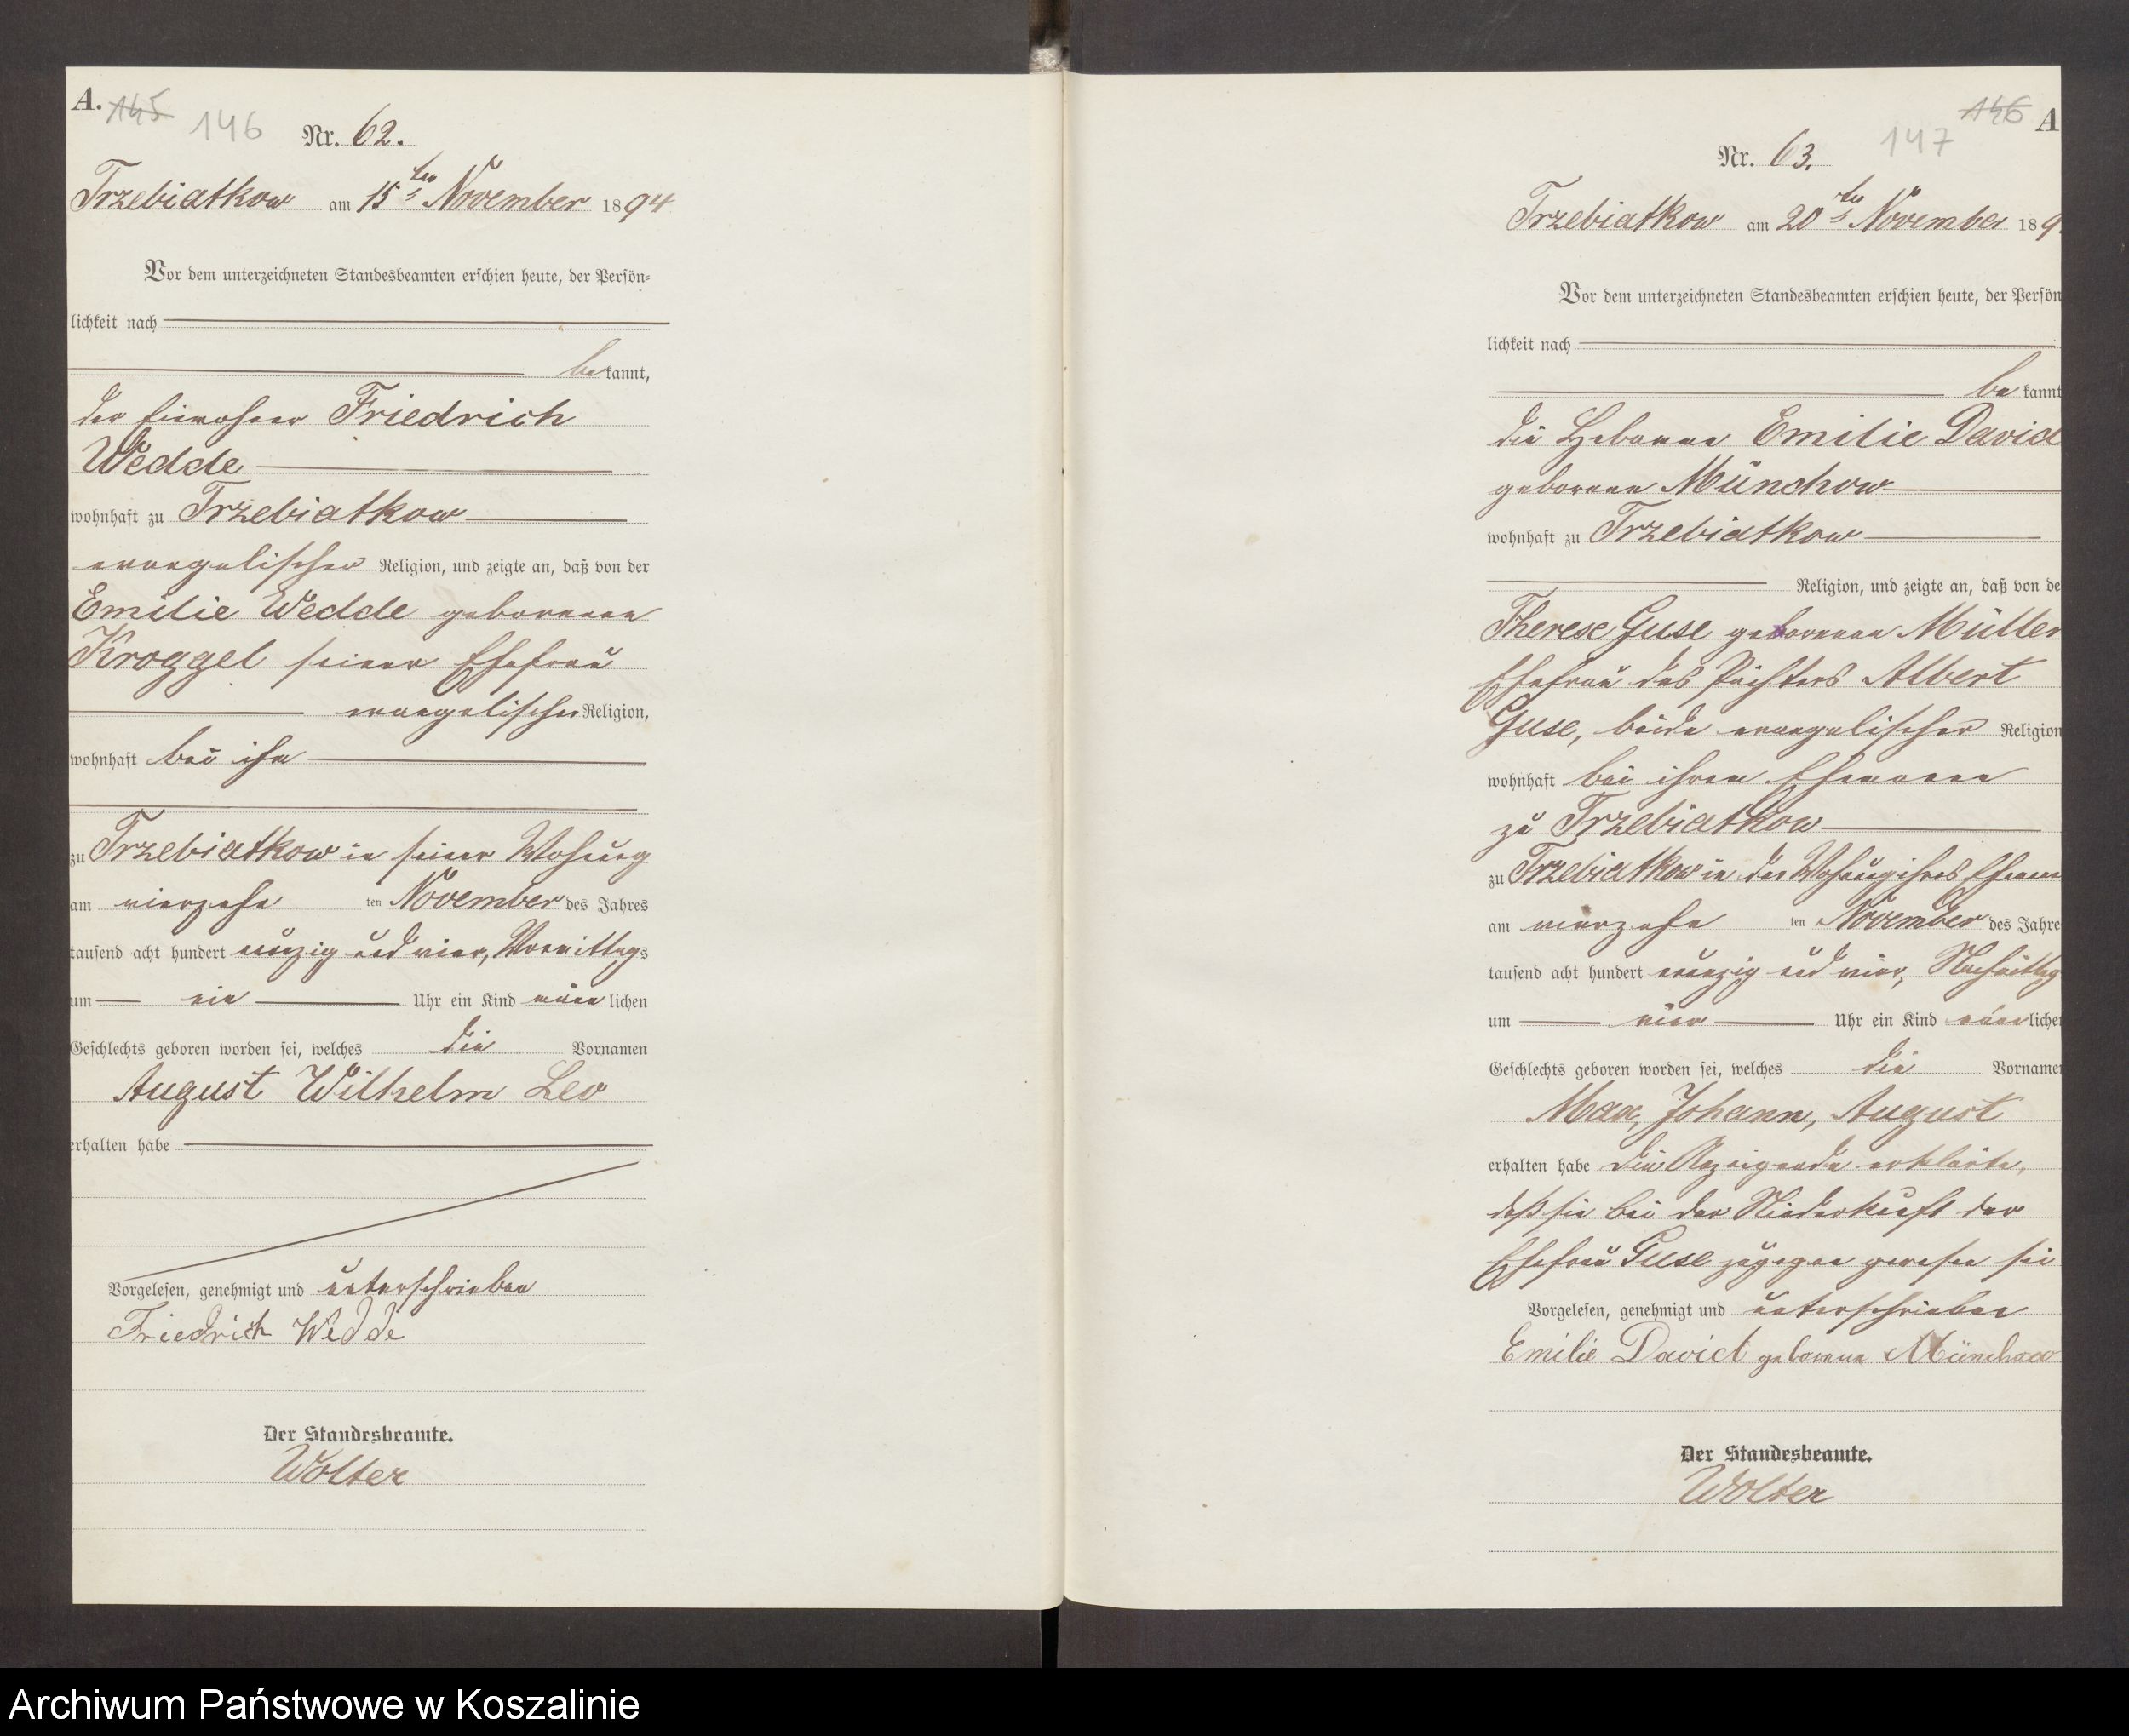 A. 145 146 Nr. 62.
Trzebiatkow am 15ten November 1894
Vor dem unterzeichneten Standesbeamten erschien heute, der Persön-
lichkeit nach
bekannt,
der Einwohner Friedrich
Wedde
wohnhaft zu Trzebiatkow
evangelischer Religion, und zeigte an, daß von der
Emilie Wedde geborenen
Kroggel seiner Ehefrau
evangelischer Religion,
wohnhaft bei ihm
zu Trzebiatkow in seiner Wohnung
am vierzehn ten November des Jahres
tausend acht hundert neunzig und vier, Vormittags
um ein Uhr ein Kind männlichen
Geschlechts geboren worden sei, welches die Vornamen
August Wilhelm Leo
erhalten habe
Vorgelesen, genehmigt und unterschrieben
Friedrich Wedde
Der Standesbeamte.
Wolter
146 A
Nr. 63. 147
Trzebiatkow am 20ten November 189
Vor dem unterzeichneten Standesbeamten erschien heute, der Persön
lichkeit nach
bekannt
die Hebamme Emilie David
geborene Münchow
wohnhaft zu Trzebiatkow
Religion, und zeigte an, daß von de
Therese Guse geborenen Müller
Ehefrau des Pächters Albert
Guse, beide evangelischer Religion
wohnhaft bei ihrem Ehemann
zu Trzebiatkow
zu Trzebiatkow in der Wohnung ihres Ehemann
am vierzehn ten November des Jahre
tausend acht hundert neunzig und vier, Nachmittag
um vier Uhr ein Kind männliche
Geschlechts geboren worden sei, welches die Vorname
Max, Johann, August
erhalten habe die Anzeigende erklärte,
daß sie bei der Niederkunft der
Ehefrau Guse zugegen gewesen sei
Vorgelesen, genehmigt und unterschrieben
Emilie David geborene Münchow
Der Standesbeamte.
Wolter
Archiwum Państwowe w Koszalinie